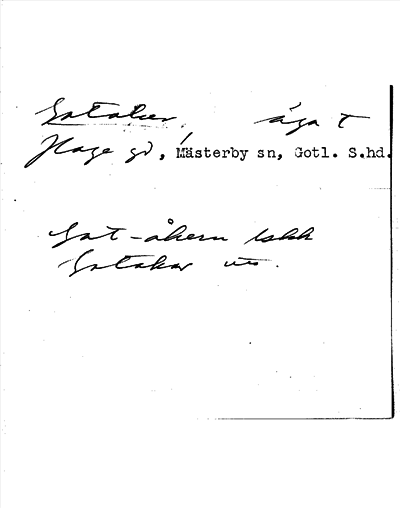 Gotaker, äga t
Hage gd, Mästerby sn, Gotl. S.hd.
Got-åkern lskk
Gotakar uts.